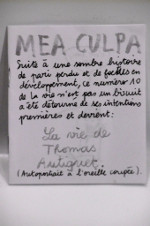 MEA CULPA
Suite à une sombre histoire
de pari perdu et de facultés en
développement, ce numéro 10
de la vie n'est pas un biscuit
a été détourné de ses intentions
premières et devient:
La vie de
Thomas
Autiquet
(Autoportait à l'oreille coupée).